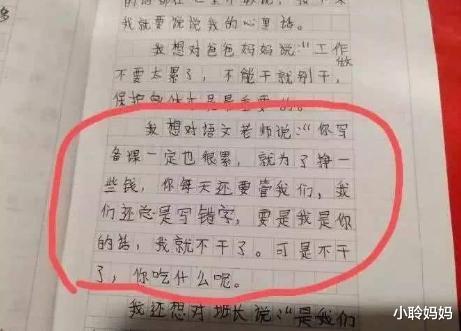 我就要说说我的心里话。
我想对爸爸妈妈说:“工作做
不要太累了,不能干就别干,
保护身体才是最重要的。
我想对语文老师说:“你写
备课一定也很累,就为了挣一
些钱,你每天还要管我们,我
们还总是写错字,要是我是你
的话,我就不干了。可是不干
了,你吃什么呢。
我还想对班长说:“是我们
小聆妈妈